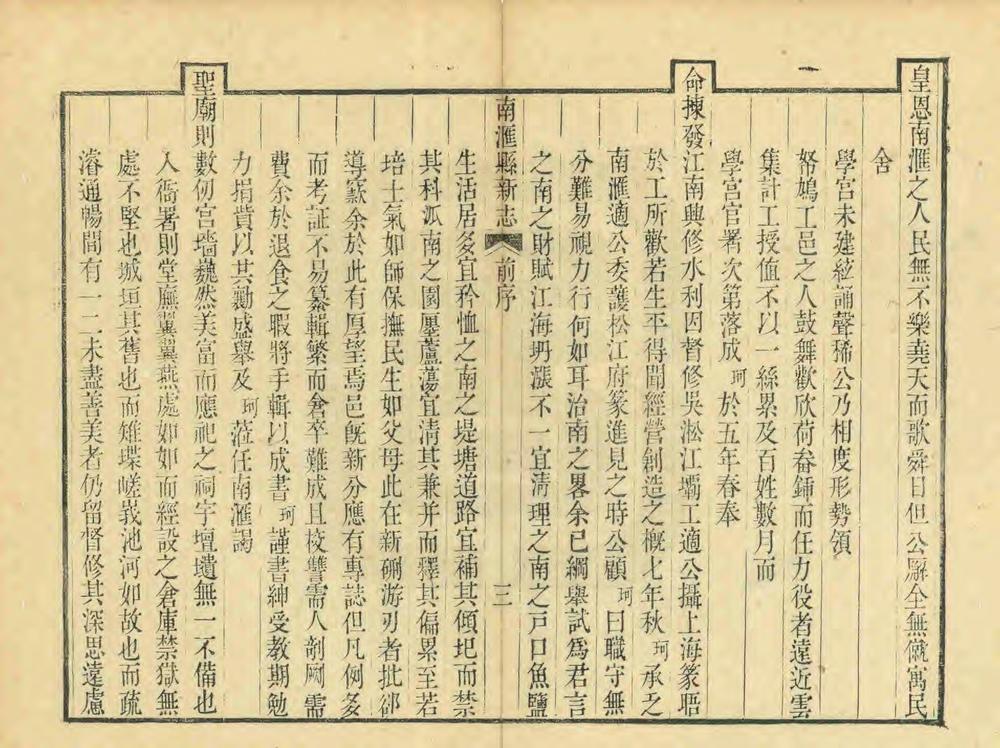 皇恩南滙之人民無不樂堯天而歌舜日但公廨全無僦寓民
舍
學宮未建絃誦聲稀公乃相度形勢領
帑鳩工邑之人鼓舞歡欣荷畚鍤而任力役者遠近雲
集計工授値不以一絲累及百姓數月而
學宮官署次第落成珂於五年春奉
命揀發江南興修水利因督修吳淞江壩工適公攝上海篆晤
於工所歡若生平得聞經營創造之槪七年秋珂承乏
南滙適公委護松江府篆進見之時公顧珂曰職守無
分難易視力行何如耳治南之畧余已綱舉試爲君言
之南之財賦江海坍漲不一宜淸理之南之戸口魚鹽
南滙縣新志 前序 三
生活居多宜矜恤之南之堤塘道路宜補其傾圯而禁
其科派南之園廛蘆蕩宜淸其兼并而釋其偏累至若
培士氣如師保撫民生如父母此在新硎游刃者批郤
導窾余於此有厚望焉邑旣新分應有專誌但凡例多
而考証不易纂輯繁而倉卒難成且校讐需人剞劂需
費余於退食之暇將手輯以成書珂謹書紳受教期勉
力捐貲以共勷盛舉及珂蒞任南滙謁
聖廟則數仞宮墻巍然美富而應祀之祠宇壇壝無一不備也
入衙署則堂廡翼翼燕處如如而經設之倉庫禁獄無
處不堅也城垣其舊也而雉堞嵯峩池河如故也而疏
濬通暢間有一二未盡善美者仍留督修其深思遠慮